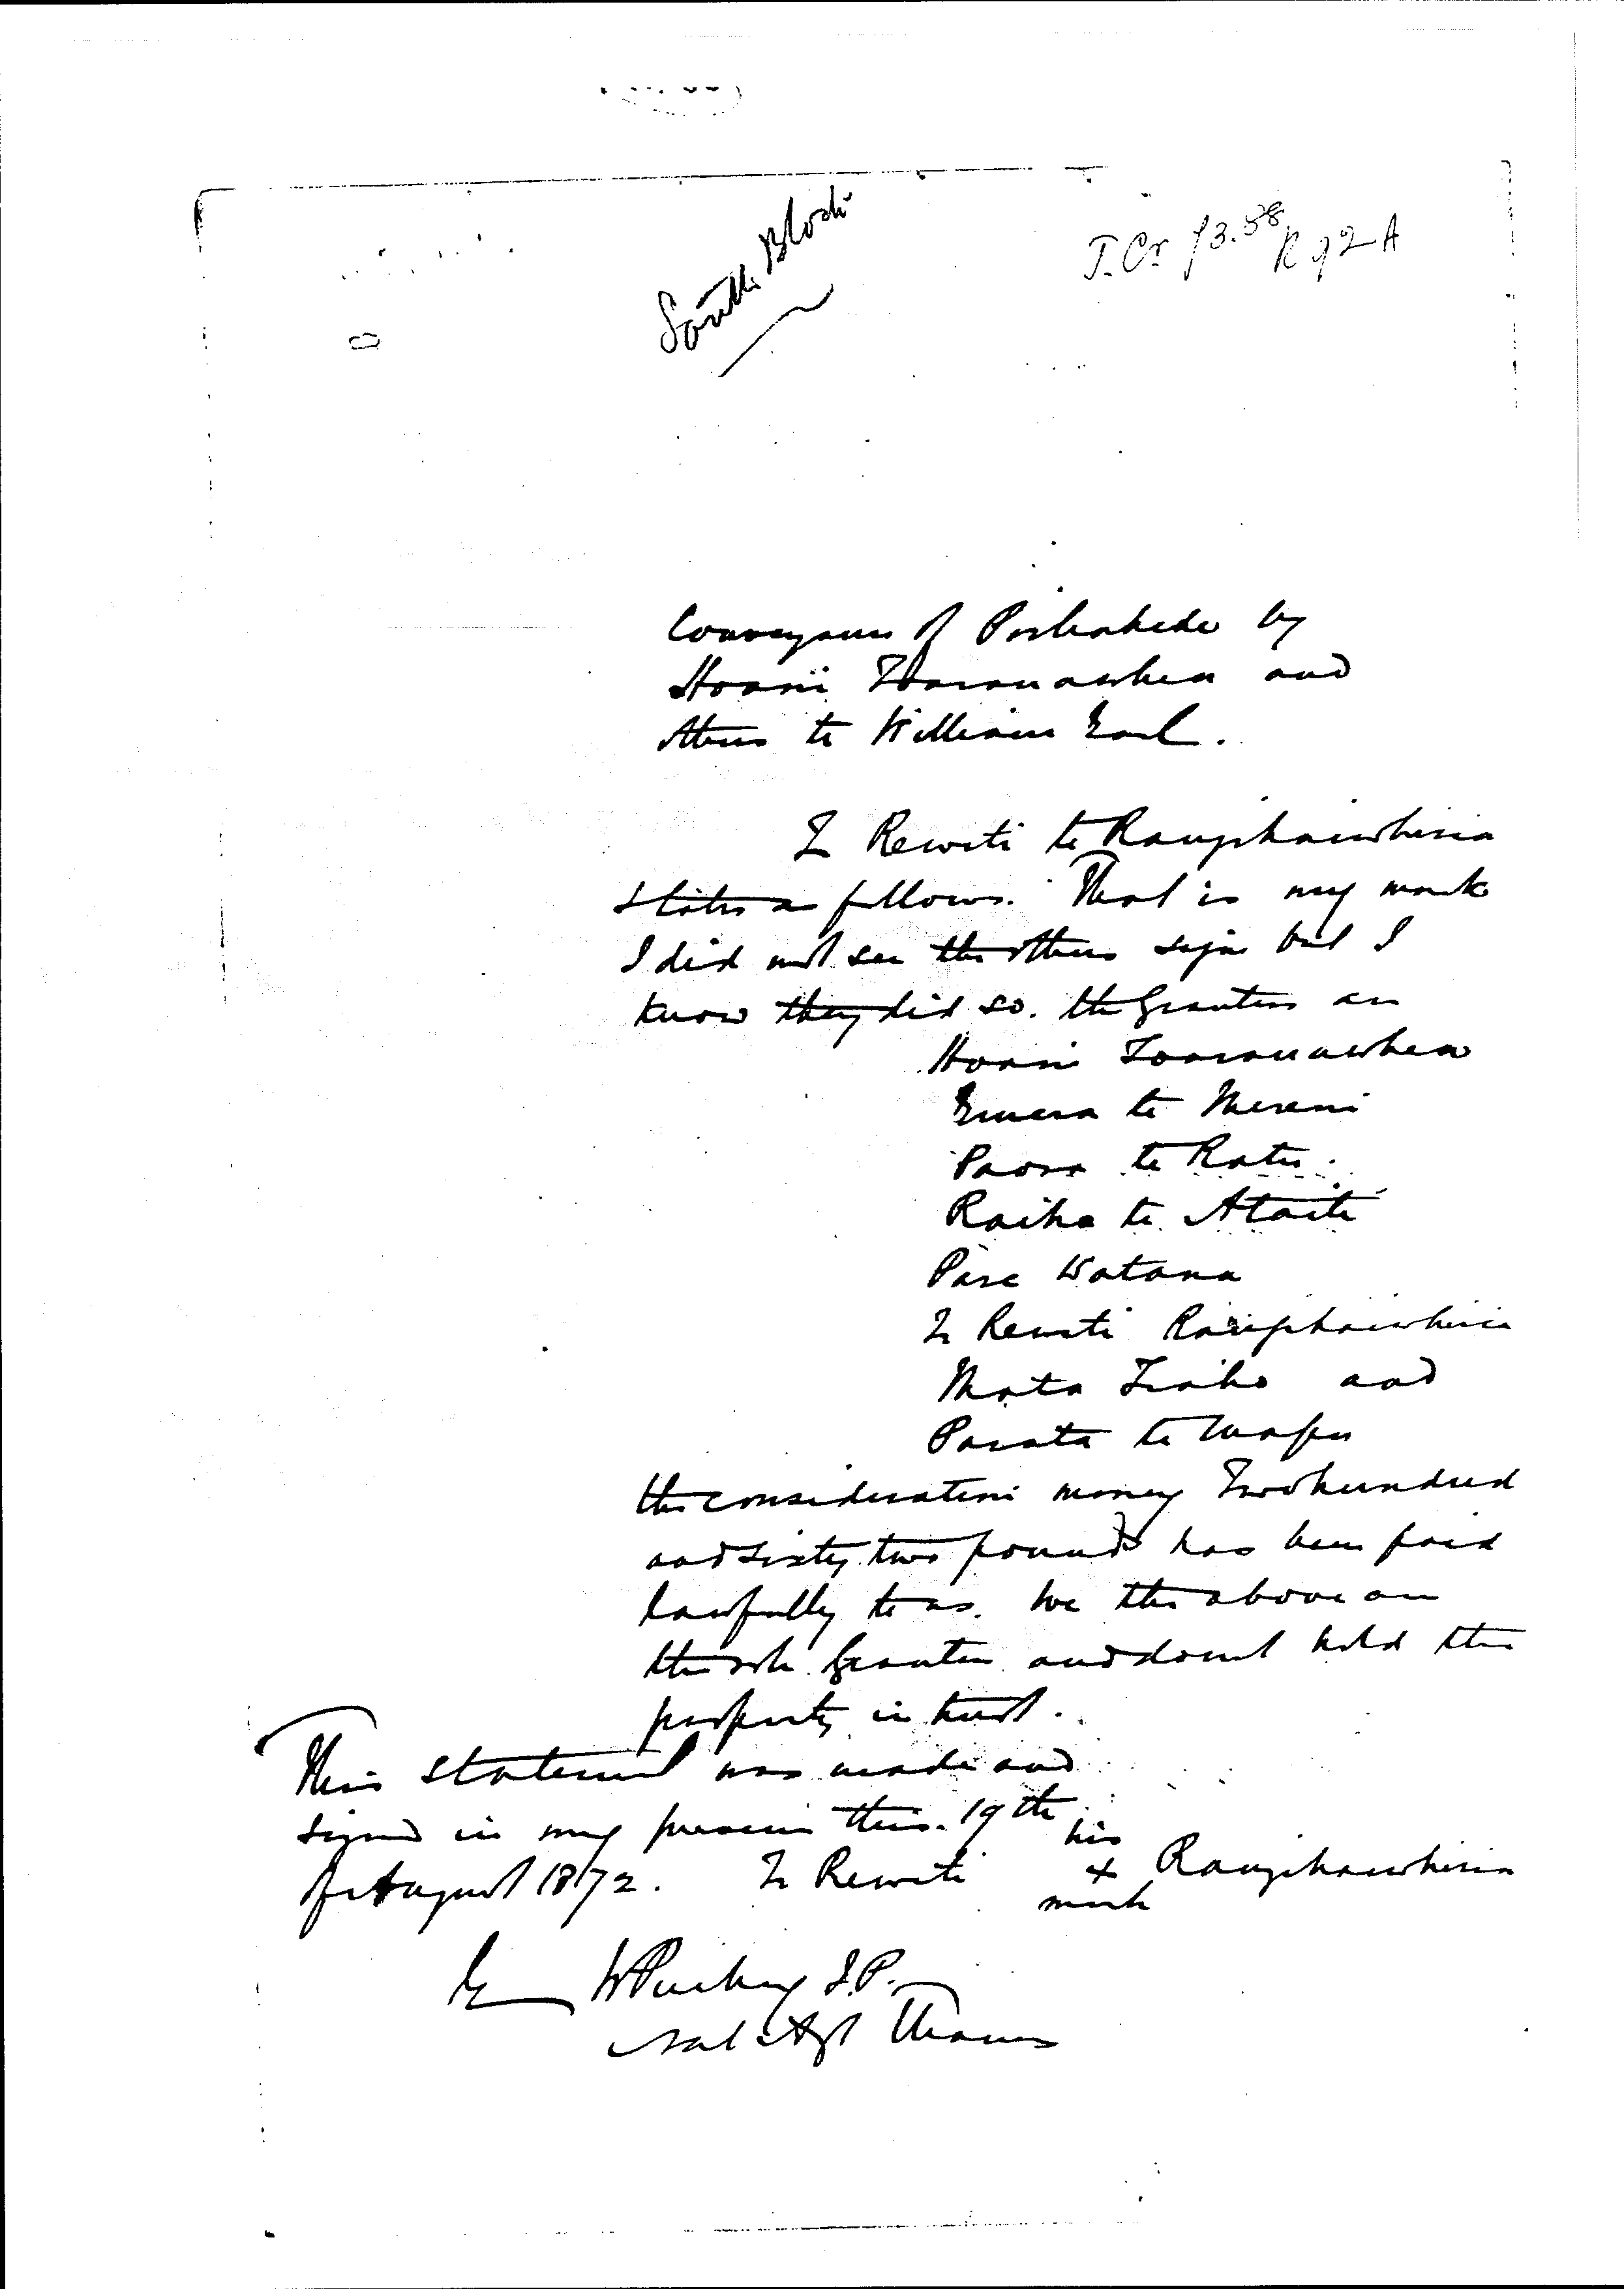 South Block
T. Cr 93.58
R 92 A
Conveyance of by
Hoani and
others to William Earl.
Te Rewiti te Rangikaiwhiria
states as follows. That is my mark
I did not see the others sign but I
know they did so. the Grantees are
Hoani
te Mereni
Paora te Ratu.
Raiha te Ataiti
Pare Watana
Te Rewiti Rangikaiwhiria
Mata Tiaho and
Parata te Mapu
the consideration money Two hundred
and sixty two pounds has been paid
lawfully to us. We the above are
the sole Grantees and dont hold the
property in trust.
This statement was made and
signed in my presence this 19th
of August 1872. Te Rewiti his x mark Rangikaiwhiria
E W Puckey J.P.
Nat Agt Thames